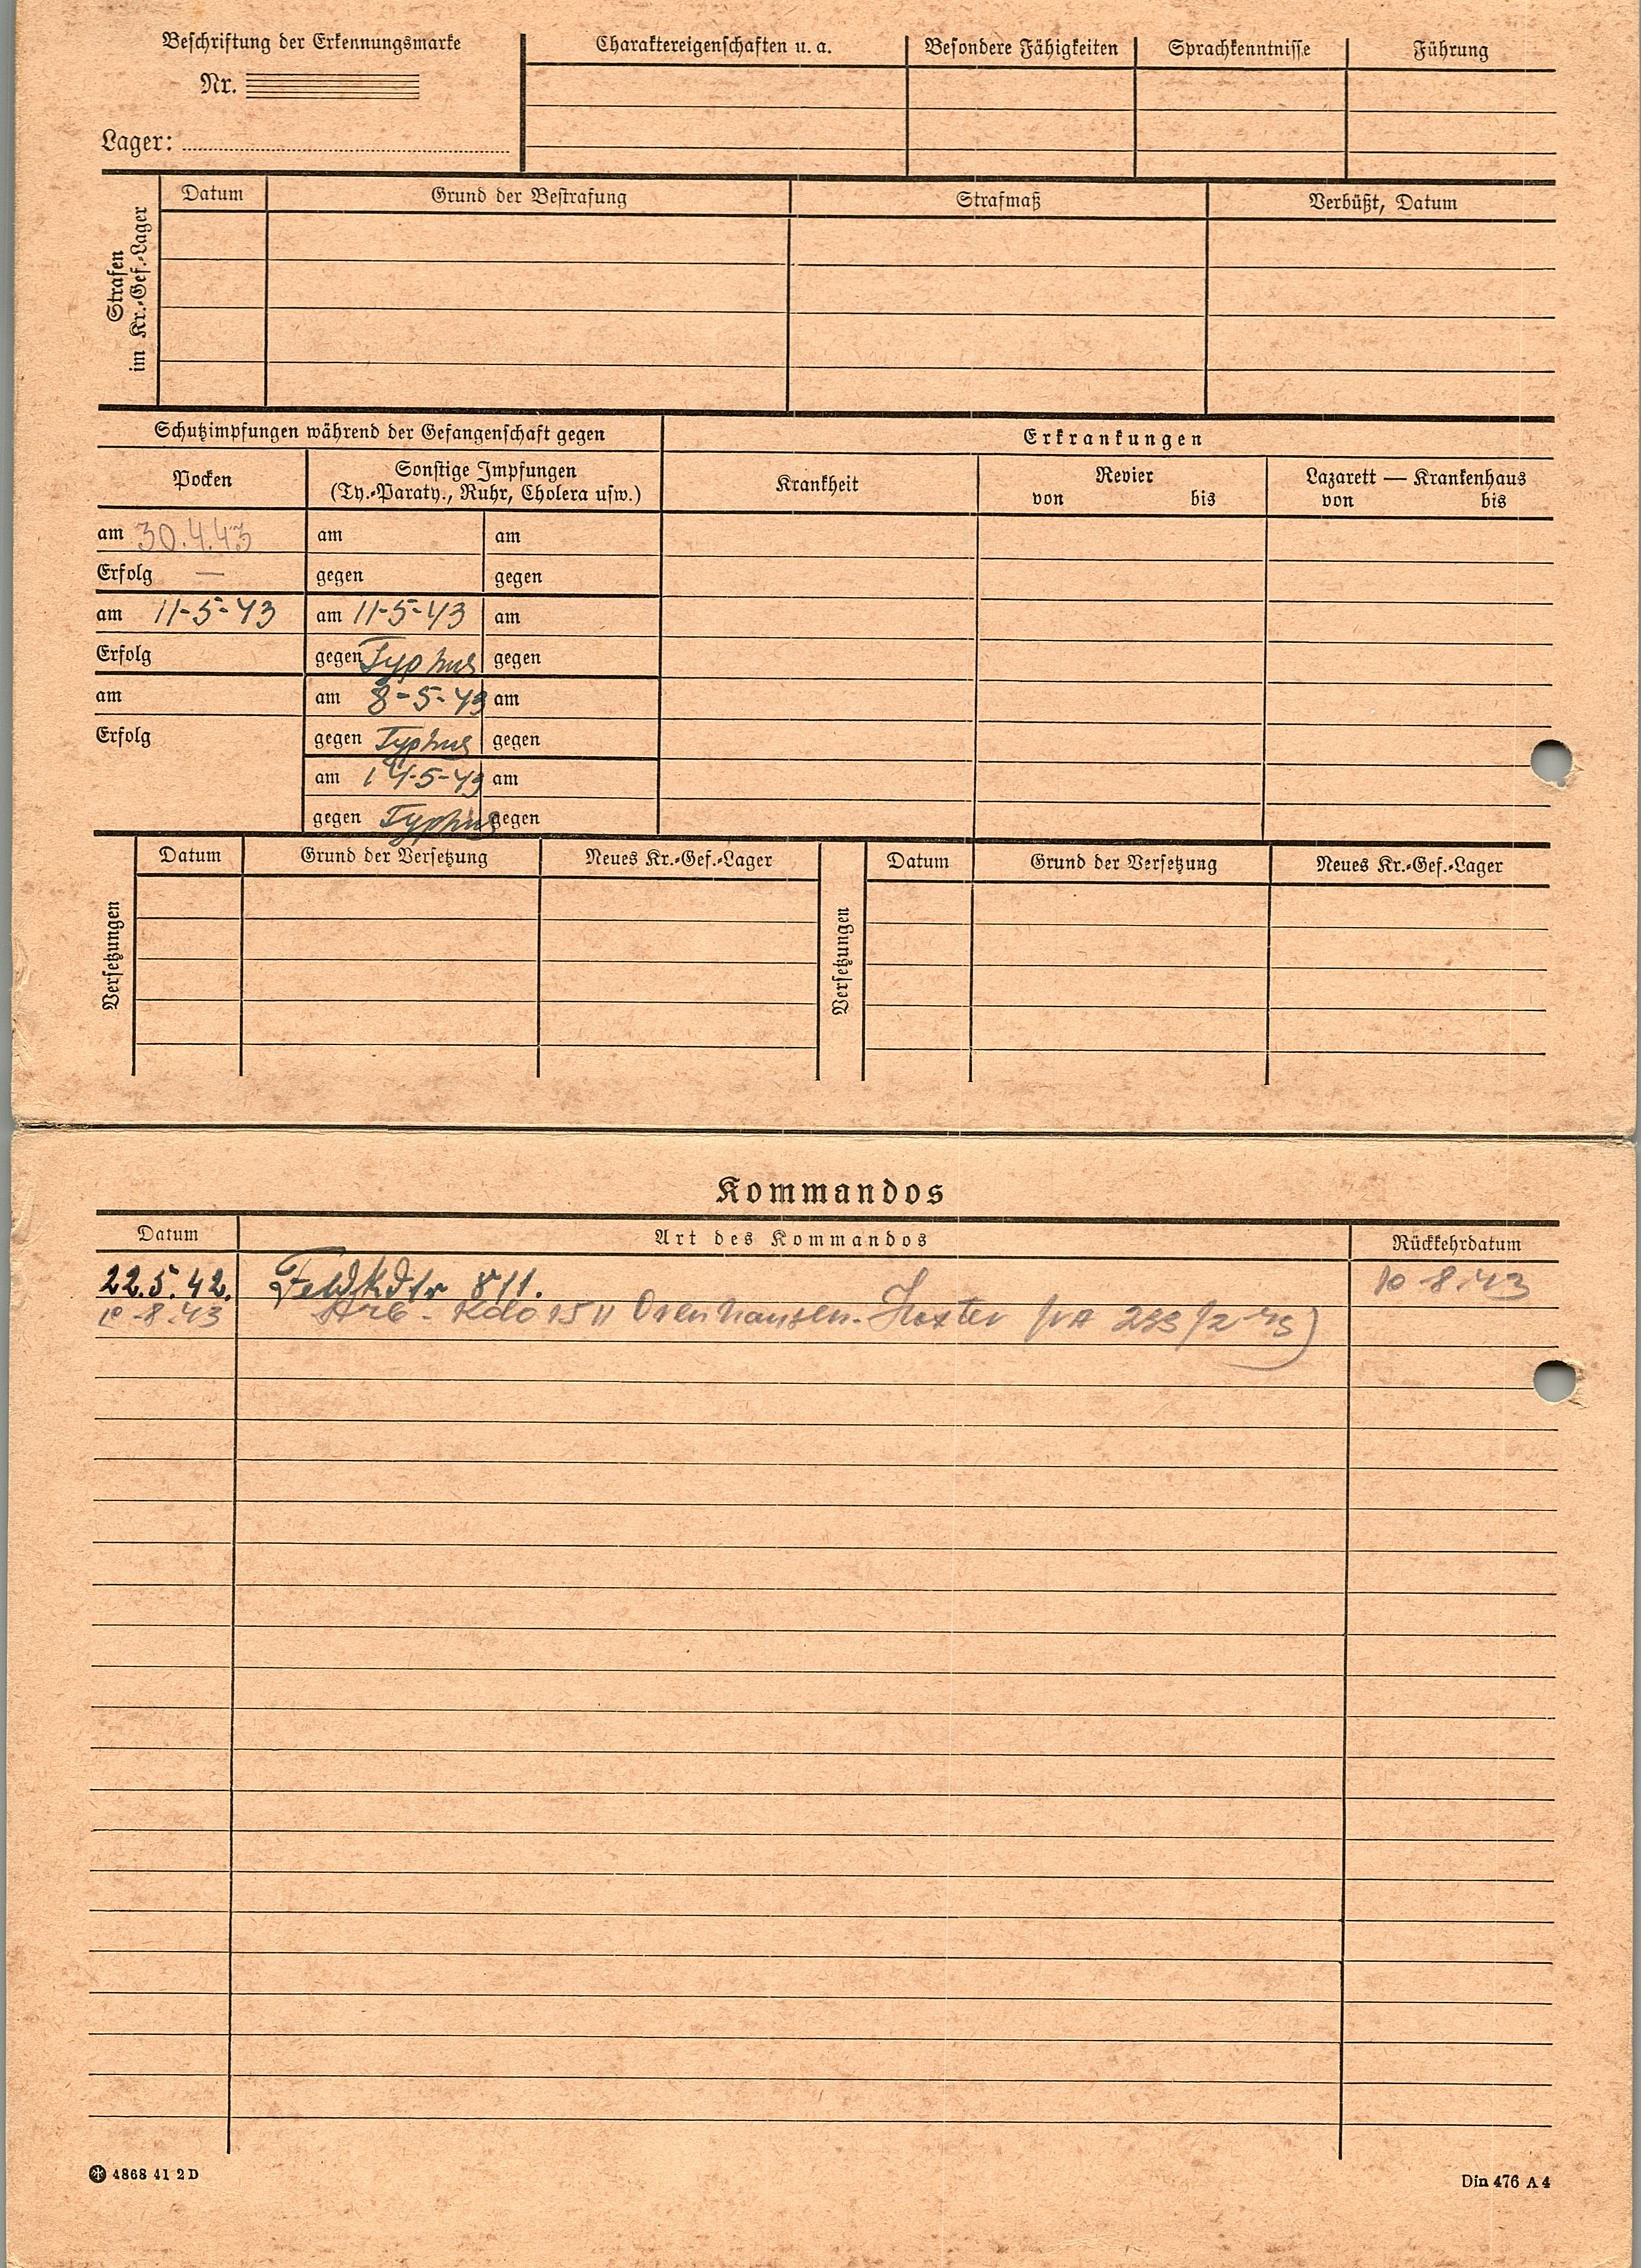 Beschriftung der Erkennungsmarke
Nr.
Lager:
Charaktereigenschaften u. a.
Besondere Fähigkeiten
Sprachkenntnisse
Führung
Strafen
im Kr.-Gef.-Lager
Datum
Grund der Bestrafung
Strafmaß
Verbüßt, Datum
Schutzimpfungen während der Gefangenschaft gegen
Erkrankungen
Pocken
Sonstige Impfungen
(Ty.-Paraty., Ruhr, Cholera usw.)
Krankheit
Revier
von bis
Lazarett — Krankenhaus
von bis
am 30.4.43 am am
Erfolg — gegen gegen
am 11-5-43 am 11-5-43 am
Erfolg gegen Typhus gegen
am am 8-5-43 am
Erfolg gegen Typhus gegen
am 14-5-43 am
gegen Typhus gegen
Versetzungen
Datum Grund der Versetzung Neues Kr.-Gef.-Lager
Versetzungen
Datum Grund der Versetzung Neues Kr.-Gef.-Lager
Kommandos
Datum Art des Kommandos Rückkehrdatum
22.5.42. Feldkdtr 811. 10-8.43
10-8.43 Arb-Kdo 1511
4868 41 2 D
Din 476 A 4